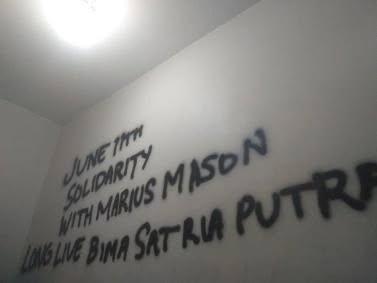 JUNE 11TH
SOLIDARITY
WITH MARIUS MASON
LONG LIVE BIMA SATRIA PUTRA